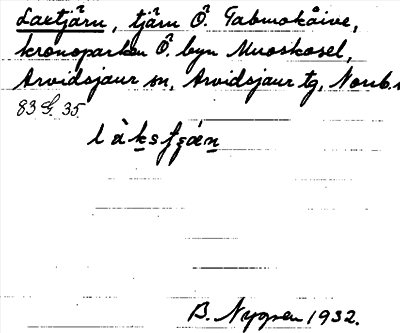 Laxtjärn, tjärn Ö. Tabmokåive,
kronoparken Ö. byn Muoskosel,
Arvidsjaur sn, Arvidsjaur tg, Norrb. l
83 G. 35.
B. Nygren 1932.